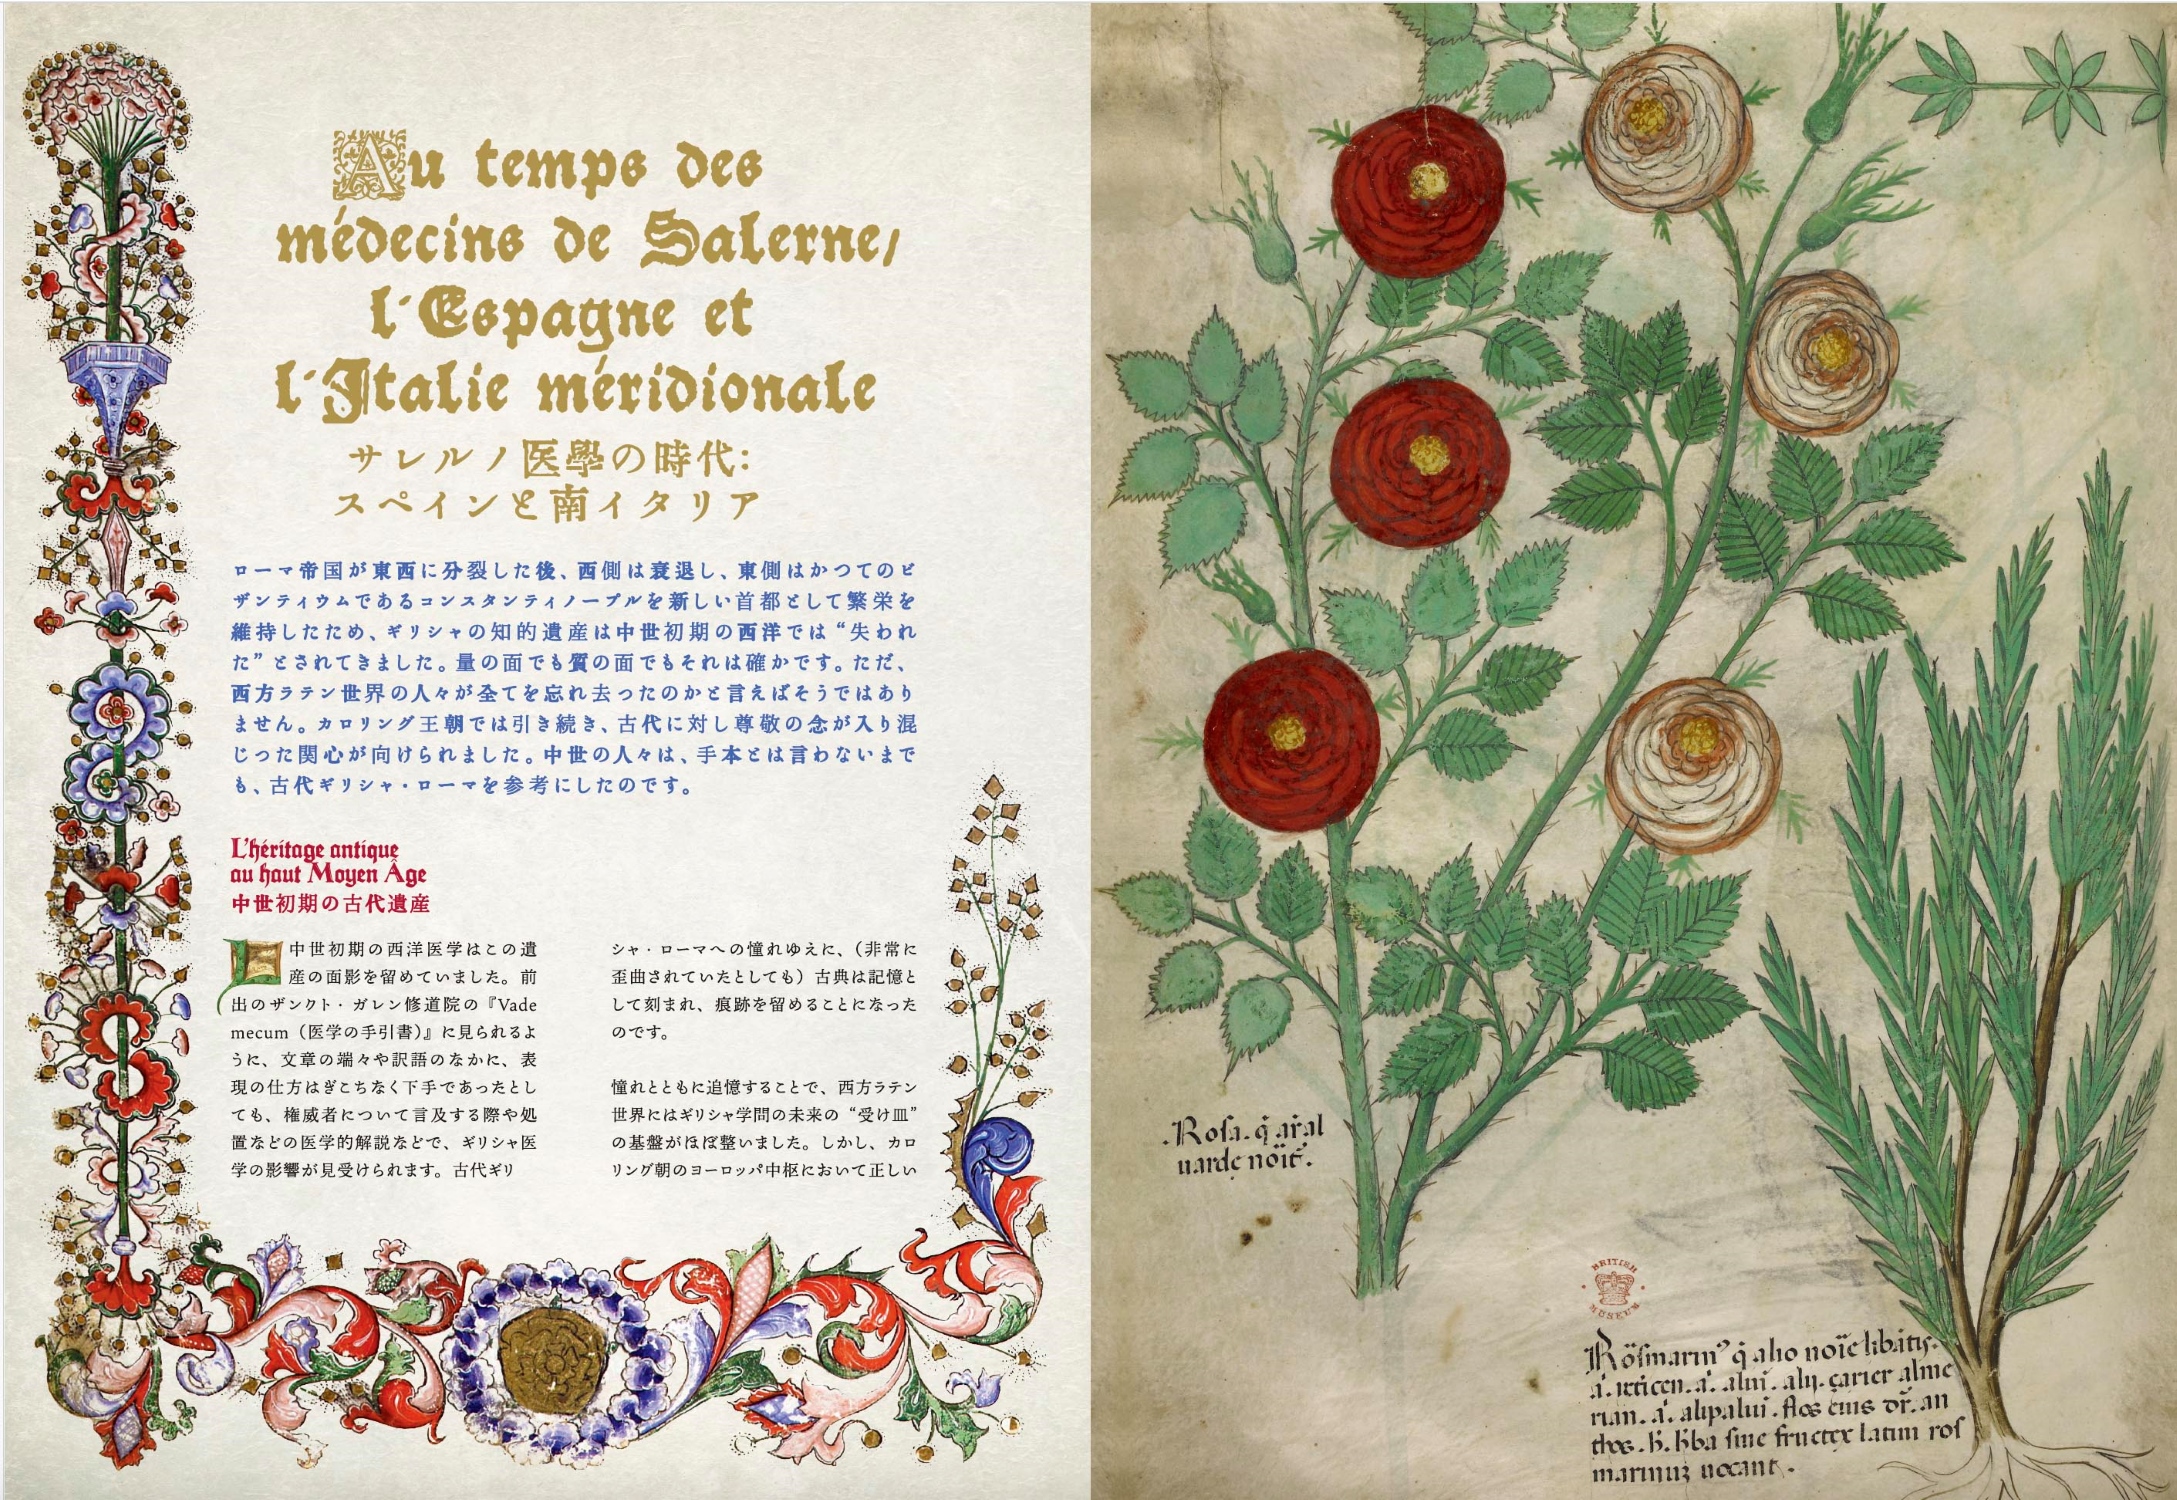 Au temps des
médecins de Salerne,
l'Espagne et
l'Italie méridionale
サレルノ医學の時代:
スペインと南イタリア
ローマ帝国が東西に分裂した後、西側は衰退し、東側はかつてのビ
ザンティウムであるコンスタンティノープルを新しい首都として繁栄を
維持したため、ギリシャの知的遺産は中世初期の西洋では“失われ
た”とされてきました。量の面でも質の面でもそれは確かです。ただ、
西方ラテン世界の人々が全てを忘れ去ったのかと言えばそうではあり
ません。カロリング王朝では引き続き、古代に対し尊敬の念が入り混
じった関心が向けられました。中世の人々は、手本とは言わないまで
も、古代ギリシャ・ローマを参考にしたのです。
L'héritage antique
au haut Moyen Âge
中世初期の古代遺産
中世初期の西洋医学はこの遺
産の面影を留めていました。前
出のザンクト・ガレン修道院の『Vade
mecum（医学の手引書）』に見られるよ
うに、文章の端々や訳語のなかに、表
現の仕方はぎこちなく下手であったとし
ても、権威者について言及する際や処
置などの医学的解説などで、ギリシャ医
学の影響が見受けられます。古代ギリ
シャ・ローマへの憧れゆえに、（非常に
歪曲されていたとしても）古典は記憶と
して刻まれ、痕跡を留めることになった
のです。
憧れとともに追憶することで、西方ラテン
世界にはギリシャ学問の未来の“受け皿”
の基盤がほぼ整いました。しかし、カロ
リング朝のヨーロッパ中枢において正しい
.Rosa. q̄ aral
uarde noīt.
BRITISH
MUSEUM
q alio noīe libatis.
alui. alij. carier alme
rian. a. alipalui. flos eius dr. an
thos. h. hba sine fructex latini ros
marinuz uocant.